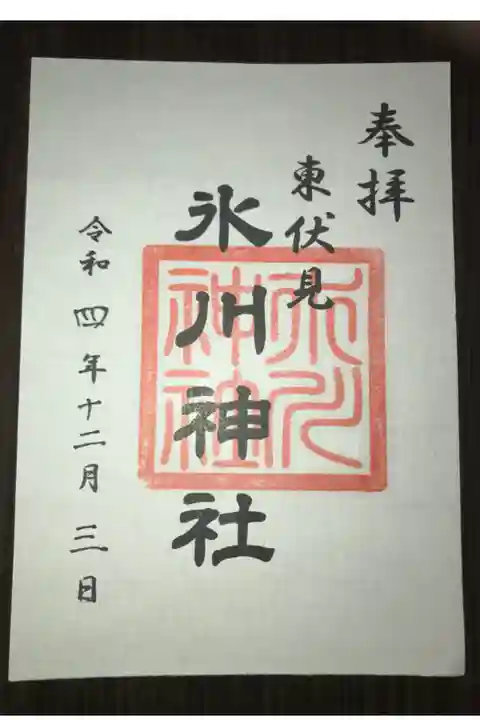 奉拝
東伏見
氷川神社
氷川神社
令和四年十二月三日